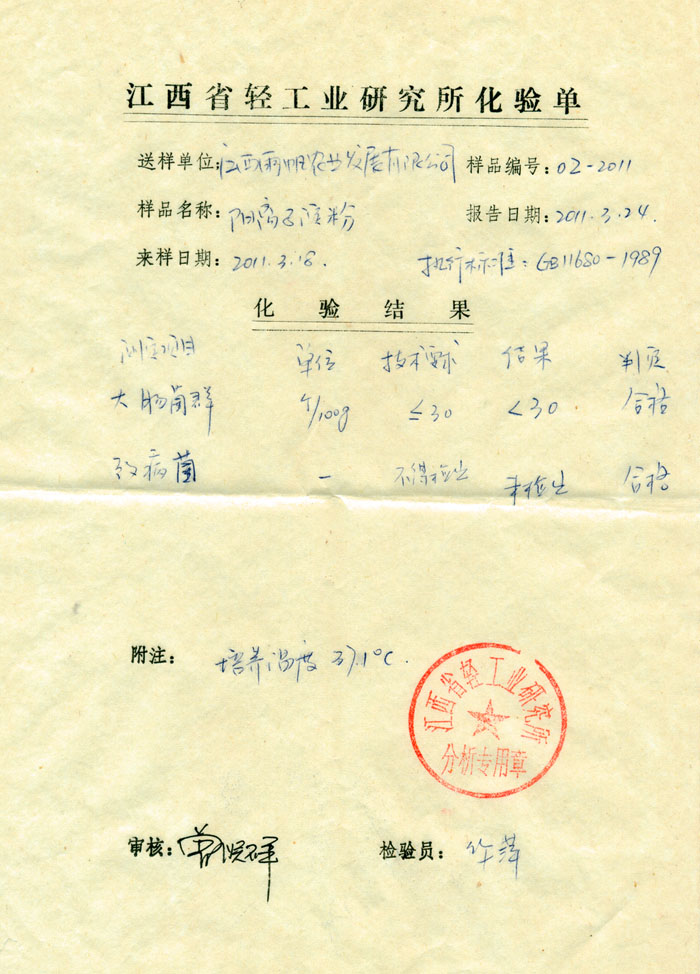 江西省轻工业研究所化验单
送样单位:江西雨帆农业发展有限公司 样品编号:02-2011
样品名称:阳离子淀粉 报告日期:2011.3.24.
来样日期:2011.3.18. 执行标准:GB11680-1989
化验结果
测定项目 单位 技术要求 结果 判定
大肠菌群 个/100g ≤30 <30 合格
致病菌 — 不得检出 未检出 合格
附注: 培养温度 37.1℃.
江西省轻工业研究所
分析专用章
审核: 检验员: